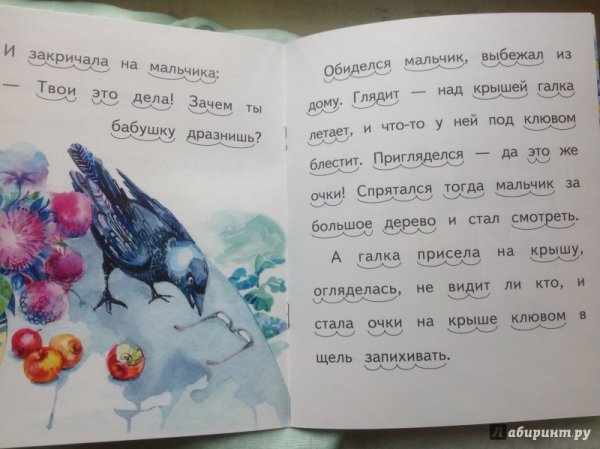 И закричала на мальчика:
— Твои это дела! Зачем ты
бабушку дразнишь?
Обиделся мальчик, выбежал из
дому. Глядит — над крышей галка
летает, и что-то у ней под клювом
блестит. Пригляделся — да это же
очки! Спрятался тогда мальчик за
большое дерево и стал смотреть.
А галка присела на крышу,
огляделась, не видит ли кто, и
стала очки на крыше клювом в
щель запихивать.
Лабиринт.ру